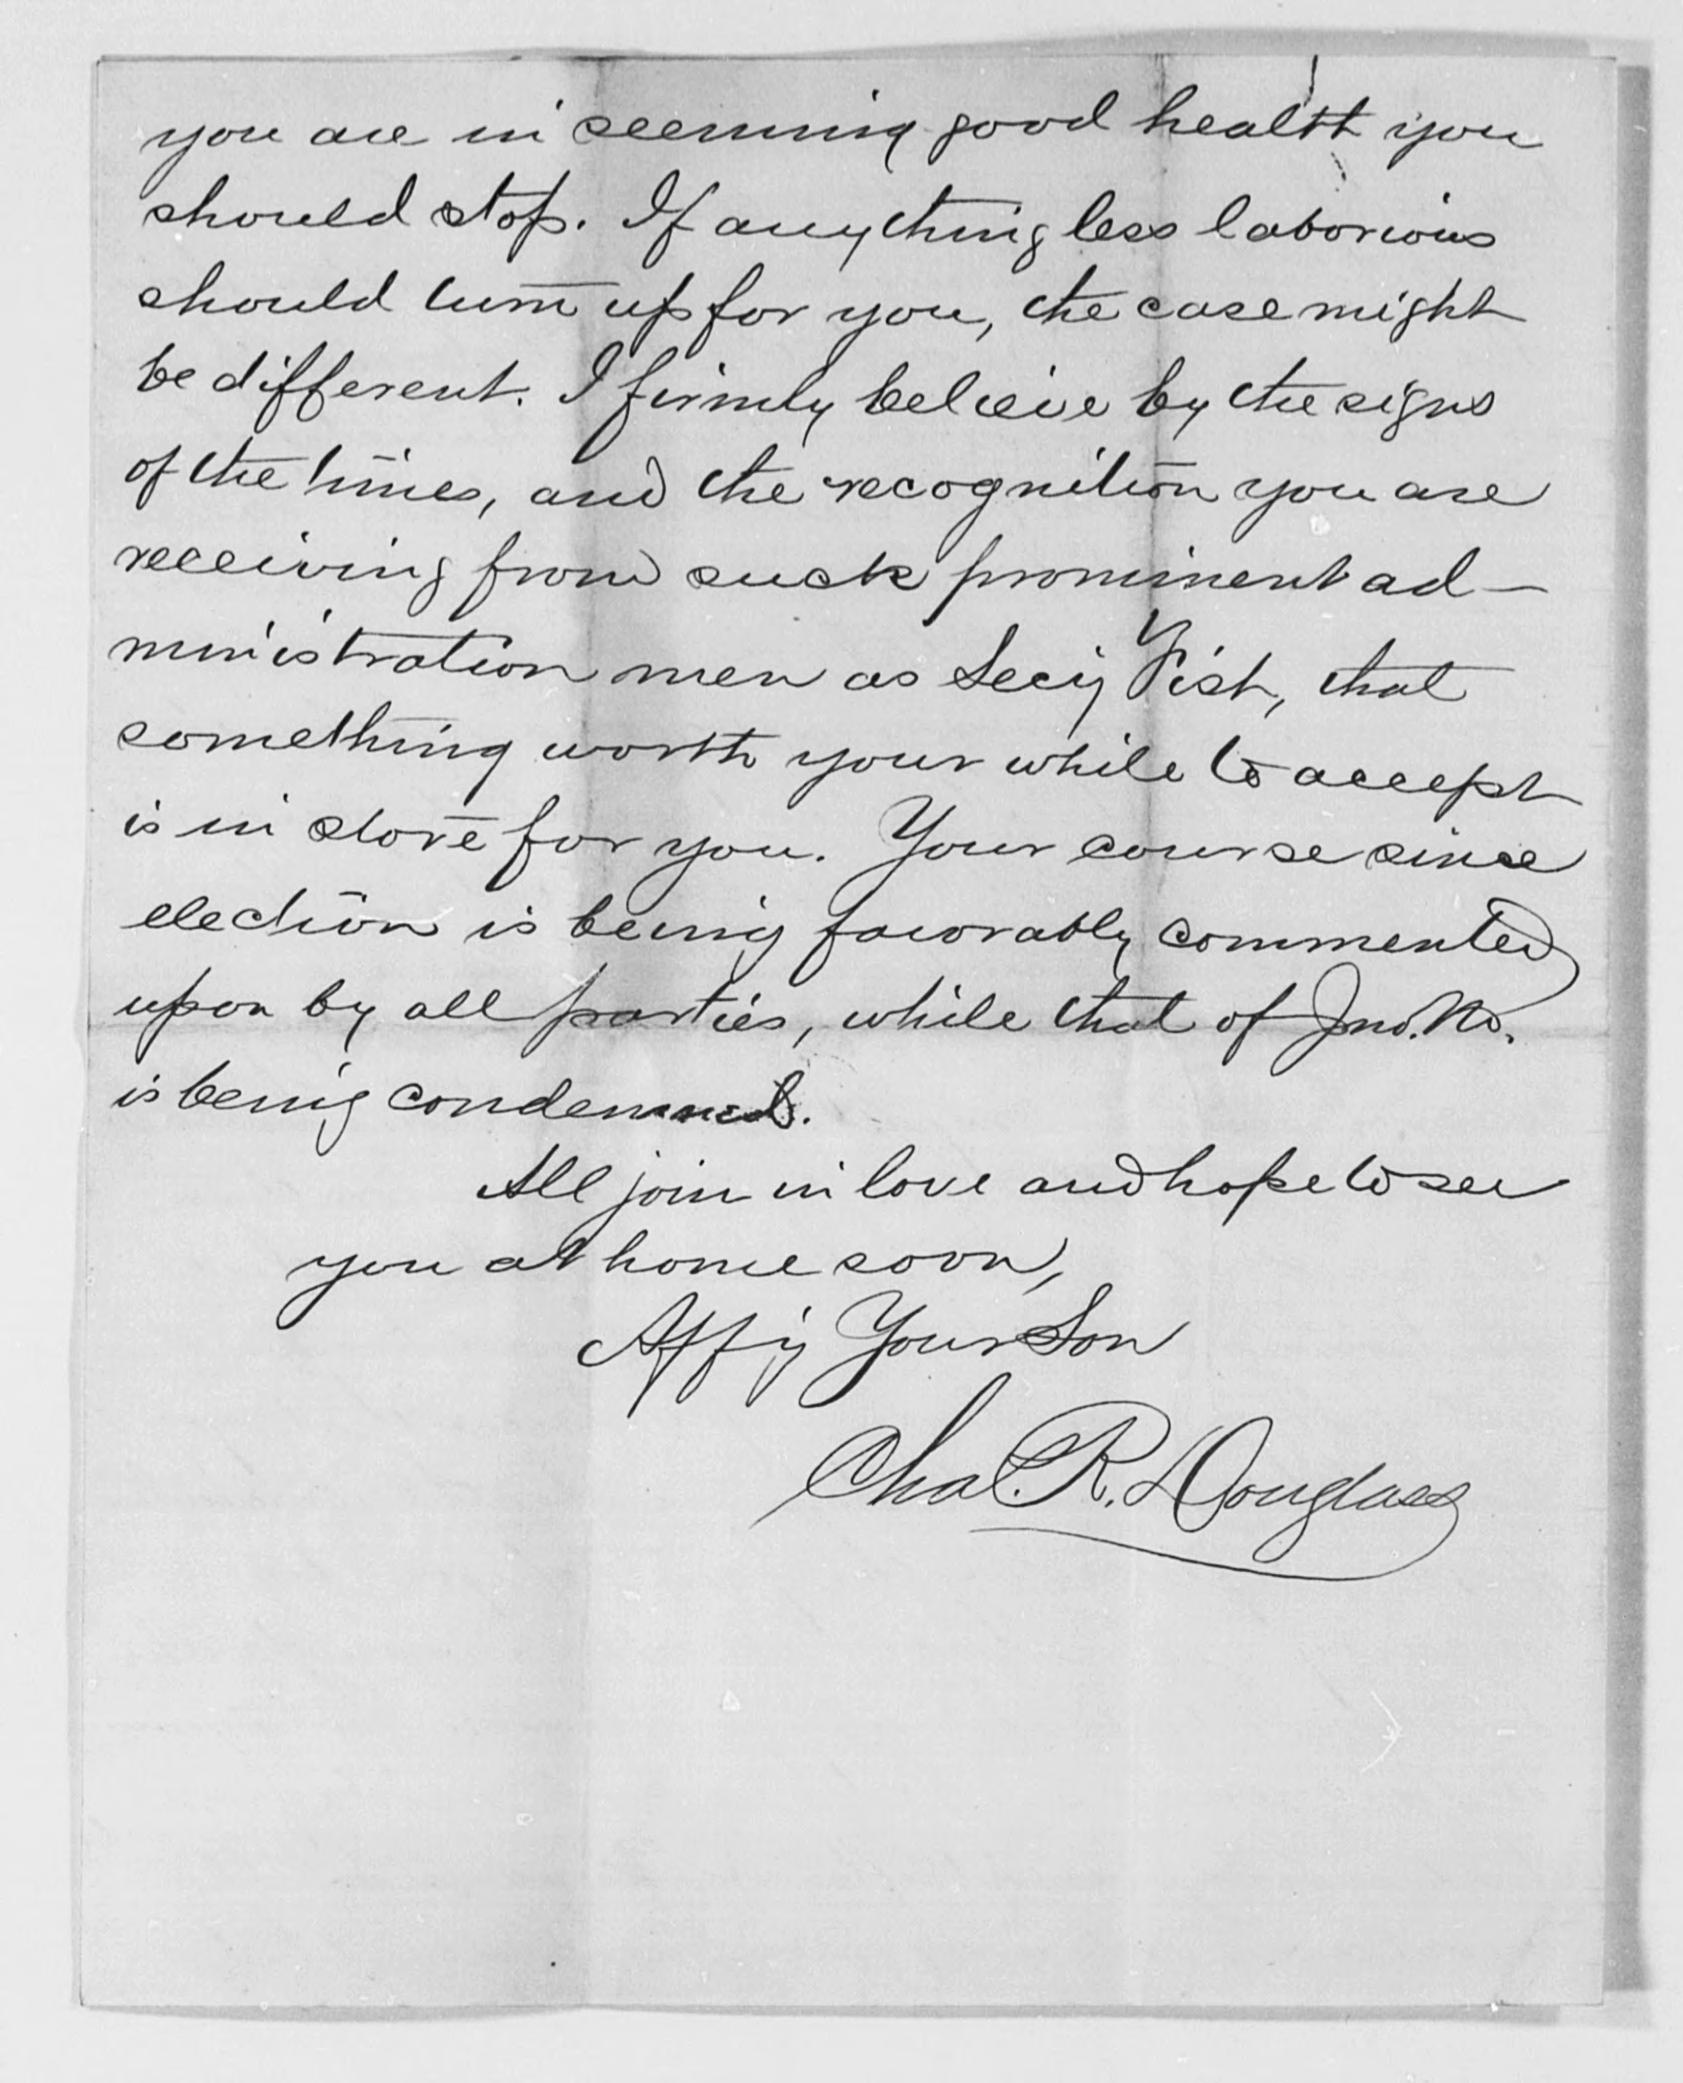 you are in seeming good health you
should stop. If anything less laborious
should turn up for you, the case might
be different. I firmly believe by the signs
of the times, and the recognition you are
receiving from such prominent ad-
ministration men as Secy Fish, that
something worth your while to accept
is in store for you. Your course since
election is being favorably commented
upon by all parties, while that of Jno.
is being condemned.
All join in love and hope to see
you at home soon,
Affy Your Son
Chas. R. Douglass